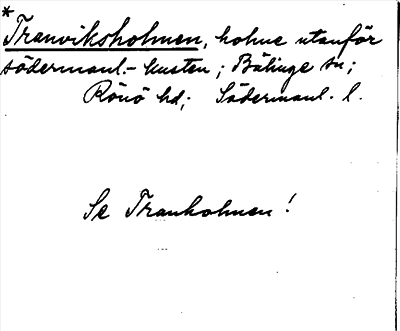 *
Tranviksholmen, holme utanför
södermanl.- kusten ; Bälinge sn ;
Rönö hd ; Södermanl. l.
Se Tranholmen !